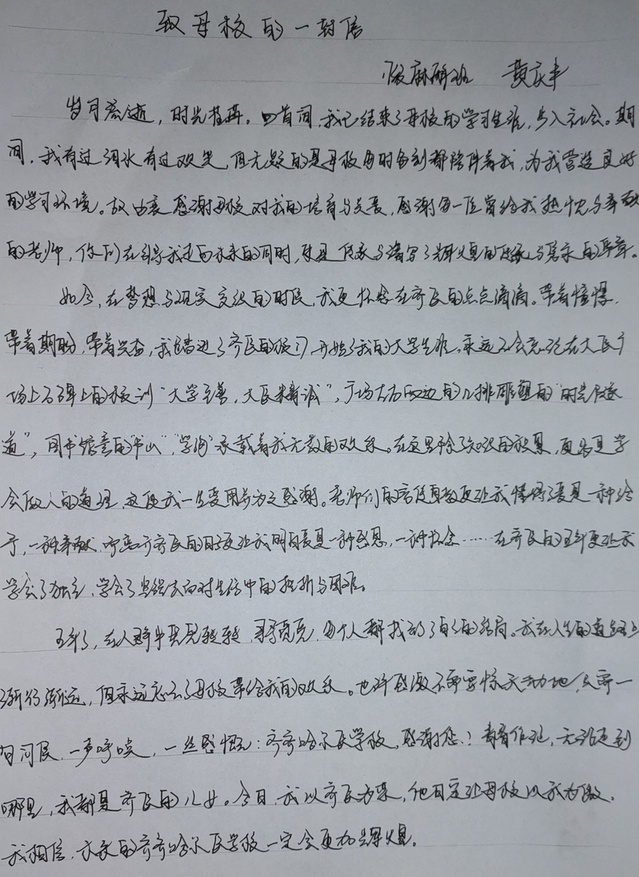 致母校的一封信
临床本硕班 黄庆丰
岁月流逝，时光荏苒。回首间，我已结束了母校的学习生涯，步入社会。期
间，我有过泪水有过欢笑，但无疑的是母校每时每刻都陪伴着我，为我营造良好
的学习环境。故由衷感谢母校对我的培育与关爱，感谢每一位曾给我热忱与奉献
的老师，你们在引导我走向未来的同时，也是
如今，在梦想与现实交织的时段，我更怀念在齐医的点点滴滴。带着憧憬，
带着期盼，带着兴奋，我踏进了齐医的校门，开始了我的大学生涯。永远不会忘记在大医广
场上石碑上的校训“大学至善，大医精诚”，广场左右两边的几排雕塑的“时光
道”，图书馆旁的“书山”“学海”承载着我无数的欢乐。在这里除了知识的收获，更多是学
会做人的道理，这使我一生受用并为之感谢。老师们的言传身教更让我懂得了爱是一种给
予，一种奉献，而离开齐医的日子更让我明白爱是一种感恩，一种怀念……在齐医的五年更让我
学会了独立，学会了坚强去面对生活中的挫折与困难。
五年了，在人群中兜兜转转，寻寻觅觅，每个人都找到了自己的结局。我在人生的道路上
渐行渐远，但永远忘不了母校带给我的欢乐。也许感激不需要惊天动地，只需一
句问候，一声呼唤，一丝感慨：齐齐哈尔医学校，感谢您！青春作证，无论走到
哪里，我都是齐医的儿女。今日，我以齐医为荣，他日定让母校以我为傲。
我相信，未来的齐齐哈尔医学校一定会更加辉煌。